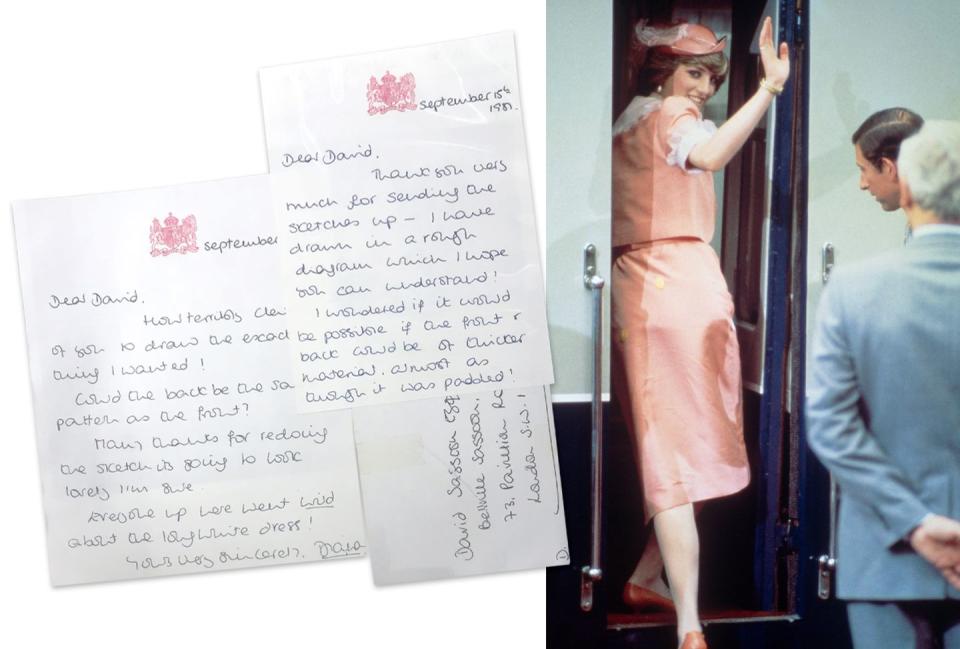 september
Dear David.
How terribly
of you to draw the exact
thing I wanted!
Could the back be the sa
pattern as the front?
Many thanks for redoing
the sketch its going to look
lovely I'm sure.
Everyone up here went wild
about the long white dress!
Yours very sincerely, Diana
september 15th
1981.
Dear David.
Thank you very
much for sending the
scetches up – I have
drawn in a rough
diagram which I hope
you can understand!
I wondered if it would
be possible if the front &
back could be of thicker
material, almost as
though it was padded!
David Sassoon Esq
Bellville Sassoon.
73. Pavillion
London S.W.1
D.